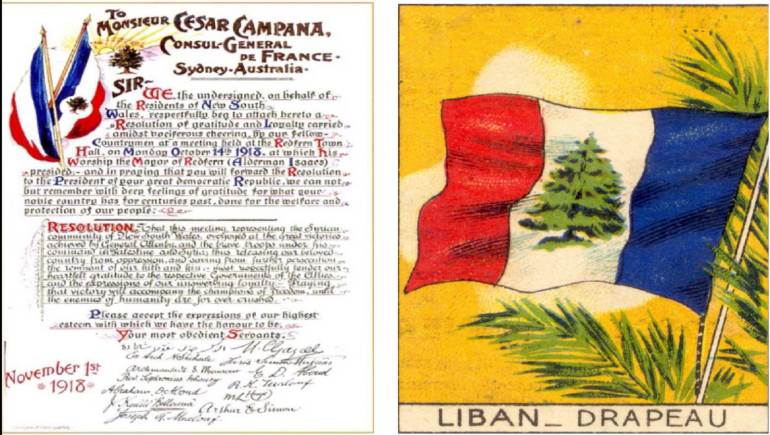 To
Monsieur Cesar Campana,
Consul-General
de France-
Sydney-Australia-
SIR-
We, the undersigned, on behalf of
the Residents of New South
Wales, respectfully beg to attach hereto a
Resolution of gratitude and Loyalty carried
amidst vociferous cheering, by our fellow
Countrymen at a meeting held at the Redfern Town
Hall, on Monday October 14th 1918, at which His
Worship the Mayor of Redfern (Alderman Isaacs)
presided:- and in praying that you will forward the Resolution
to the President of your great democratic Republic, we can not
but remember with deep feelings of gratitude for what your
noble country has for centuries past, done for the welfare and
protection of our people:-
RESOLUTION. That this meeting, representing the Syrian
community of New South Wales, overjoyed at the great victories
achieved by General Allenby, and the brave troops under his
command in Palestine and Syria; thus releasing our beloved
country from oppression, and saving from further persecution
the remnant of our kith and kin:- most respectfully tender our
heartfelt gratitude to the respective Governments of the Allies
and the expressions of our unswerving loyalty:- Praying
that victory will accompany the champions of Freedom, until
the enemies of humanity are for ever crushed.
Please accept the expressions of our highest
esteem with which we have the honour to be,
Your most obedient Servants.
November 1st
1918
Arthur E Simon
LIBAN_ DRAPEAU